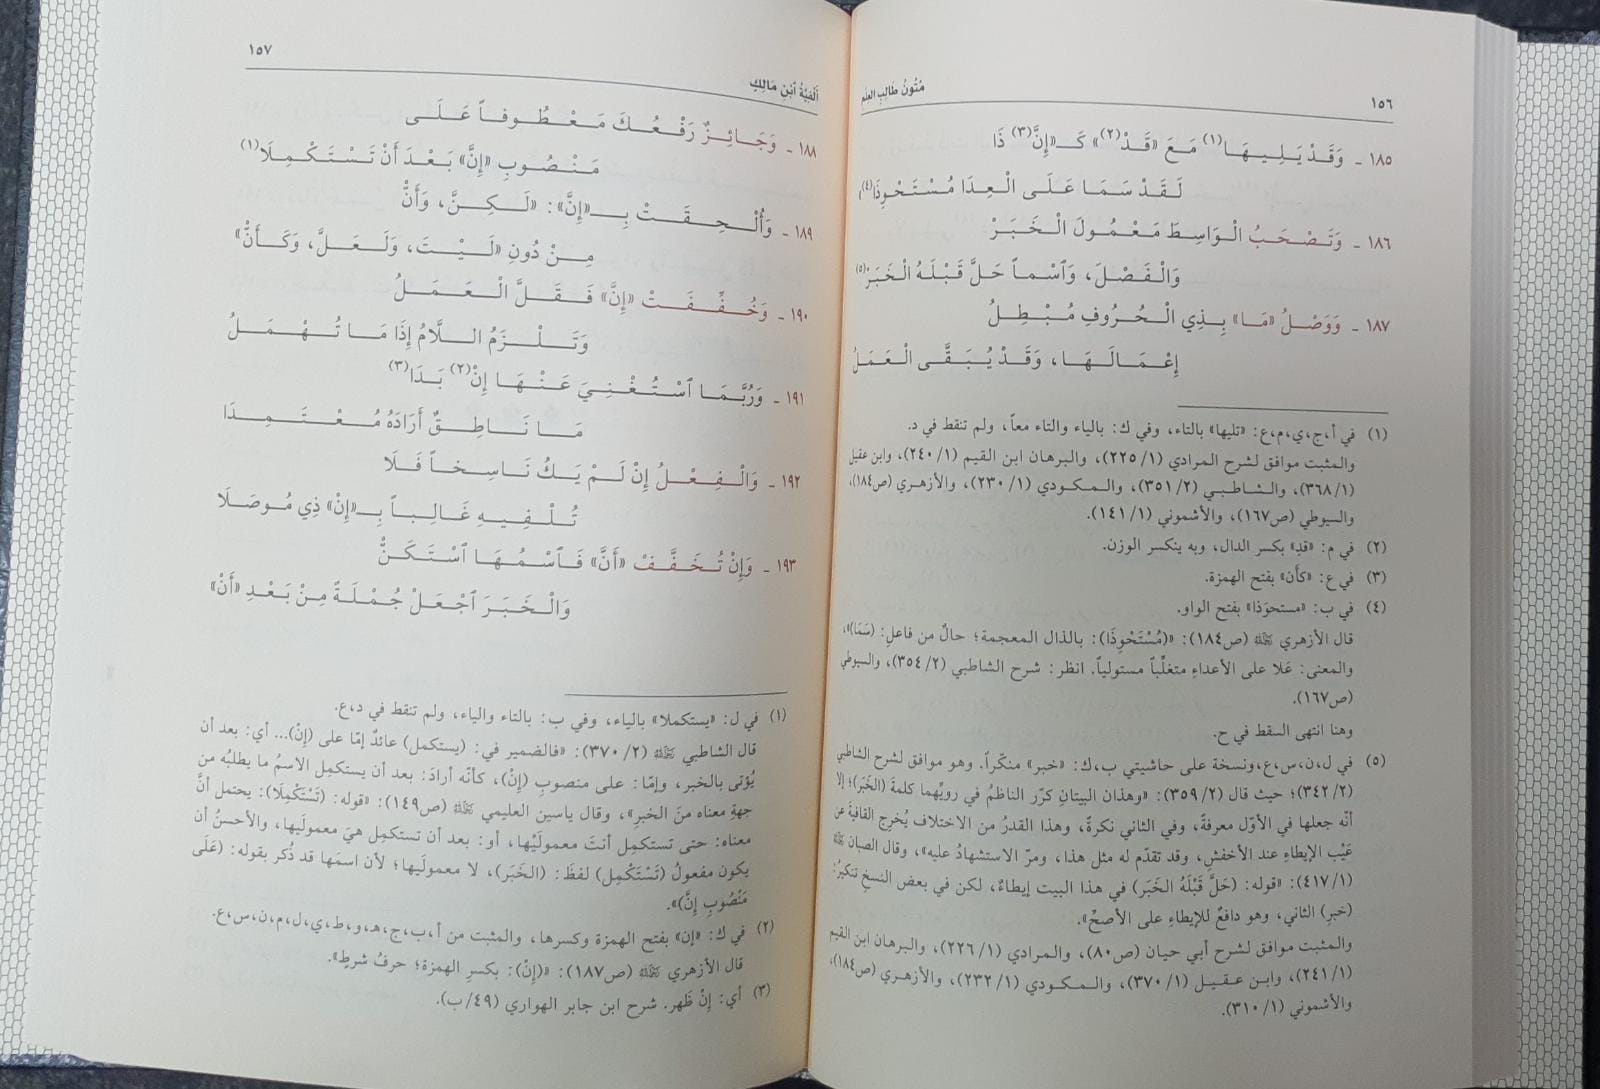 ١٥٦
مُتُونُ طَالِبِ العِلْمِ
١٨٥ ـ وَقَدْ يَلِيهَا(١) مَعَ «قَدْ(٢)» كَـ«إِنَّ(٣) ذَا
لَقَدْ سَمَا عَلَى الْعِدَا مُسْتَحْوِذَا(٤)
١٨٦ ـ وَتَصْحَبُ الْوَاسِطَ مَعْمُولَ الْخَبَرْ
وَالْفَصْلَ، وَٱسْماً حَلَّ قَبْلَهُ الْخَبَرْ(٥)
١٨٧ ـ وَوَصْلُ «مَا» بِذِي الْحُرُوفِ مُبْطِلُ
إِعْمَالَهَا، وَقَدْ يُبَقَّى الْعَمَلُ
(١) في أ،ج،ي،م،ع: «تليها» بالتاء، وفي ك: بالياء والتاء معاً، ولم تنقط في د.
والمثبت موافق لشرح المرادي (٢٢٥/١)، والبرهان ابن القيم (٢٤٠/١)، وابن عقيل
(٣٦٨/١)، والشاطبي (٣٥١/٢)، والمكودي (٢٣٠/١)، والأزهري (ص١٨٤)،
والسيوطي (ص١٦٧)، والأشموني (١٤١/١).
(٢) في م: «قدِ» بكسر الدال، وبه ينكسر الوزن.
(٣) في ع: «كأَن» بفتح الهمزة.
(٤) في ب: «مستحوَذا» بفتح الواو.
قال الأزهري ﷺ (ص١٨٤): «(مُسْتَحْوِذَا): بالذال المعجمة؛ حالٌ من فاعلِ: (سَمَا)»،
والمعنى: عَلا على الأعداءِ متغلِّباً مستولياً. انظر: شرح الشاطبي (٣٥٤/٢)، والسيوطي
(ص١٦٧).
وهنا انتهى السقط في ح.
(٥) في ل،ن،س،ع،ونسخة على حاشيتي ب،ك: «خبر» منكّراً. وهو موافق لشرح الشاطبي
(٣٤٢/٢)؛ حيث قال (٣٥٩/٢): «وهذان البيتانِ كرّر الناظمُ في رويِّهما كلمةَ (الخَبَر)؛ إلا
أنّه جعلها في الأوّل معرفةً، وفي الثاني نكرةً، وهذا القدرُ من الاختلاف يُخرِج القافيةَ عن
عَيْب الإيطاءِ عند الأخفشِ، وقد تقدّم له مثل هذا، ومرّ الاستشهادُ عليه»، وقال الصبان
(٤١٧/١): «قوله: (حَلَّ قَبْلَهُ الخَبَر) في هذا البيت إيطاءٌ، لكن في بعض النسخ تنكيرُ:
(خبر) الثاني، وهو دافعٌ للإيطاءِ على الأصحّ».
والمثبت موافق لشرح أبي حيان (ص٨٠)، والمرادي (٢٢٦/١)، والبرهان ابن القيم
(٢٤١/١)، وابن عقيل (٣٧٠/١)، والمكودي (٢٣٢/١)، والأزهري (ص١٨٤)،
والأشموني (٣١٠/١).
١٥٧
أَلْفِيَّةُ ٱبْنِ مَالِكٍ
١٨٨ ـ وَجَائِزٌ رَفْعُكَ مَعْطُوفاً عَلَى
مَنْصُوبِ «إِنَّ» بَعْدَ أَنْ تَسْتَكْمِلَا(١)
١٨٩ ـ وَأُلْحِقَتْ بِـ«إِنَّ»: «لَكِنَّ، وَأَنَّ
مِنْ دُونِ «لَيْتَ، وَلَعَلَّ، وَكَأَنَّ»
١٩٠ ـ وَخُفِّفَتْ «إِنَّ» فَقَلَّ الْعَمَلُ
وَتَلْزَمُ اللَّامُ إِذَا مَا تُهْمَلُ
١٩١ ـ وَرُبَّمَا ٱسْتُغْنِيَ عَنْهَا إِنْ(٢) بَدَا(٣)
مَا نَاطِقٌ أَرَادَهُ مُعْتَمِدَا
١٩٢ ـ وَالْفِعْلُ إِنْ لَمْ يَكُ نَاسِخاً فَلَا
تُلْفِيهِ غَالِباً بِـ«إِنْ» ذِي مُوصَلَا
١٩٣ ـ وَإِنْ تُخَفَّفْ «أَنَّ» فَٱسْمُهَا ٱسْتَكَنّْ
وَالْخَبَرَ ٱجْعَلْ جُمْلَةً مِنْ بَعْدِ «أَنْ»
(١) في ل: «يستكملا» بالياء، وفي ب: بالتاء والياء، ولم تنقط في د،ع.
قال الشاطبي (٣٧٠/٢): «فالضمير في: (يستكمل) عائدٌ إمّا على (إِنّ)... أي: بعد أن
يُؤتى بالخبر، وإمّا: على منصوبِ (إِنّ)، كأنّه أرادَ: بعد أن يستكمِل الاسمُ ما يطلبُه من
جهةِ معناه منَ الخبرِ»، وقال ياسين العليمي (ص١٤٩): «قوله: (تَسْتَكْمِلَا): يحتمل أنَّ
معناه: حتى تستكمِل أنتَ معمولَيْها، أو: بعد أن تستكمِل هيَ معمولَيها، والأحسنُ أن
يكون مفعولُ (تَسْتَكْمِل) لفظَ: (الخَبَر)، لا معمولَيها؛ لأن اسمَها قد ذُكر بقوله: (عَلَى
مَنْصُوبِ إِنَّ)».
(٢) في ك: «إن» بفتح الهمزة وكسرها، والمثبت من أ،ب،ج،هـ،و،ط،ي،ل،م،ن،س،ع.
قال الأزهري (ص١٨٧): «(إِنْ): بكسرِ الهمزة؛ حرفُ شرطٍ».
(٣) أي: إنْ ظَهر. شرح ابن جابر الهواري (٤٩/ب).